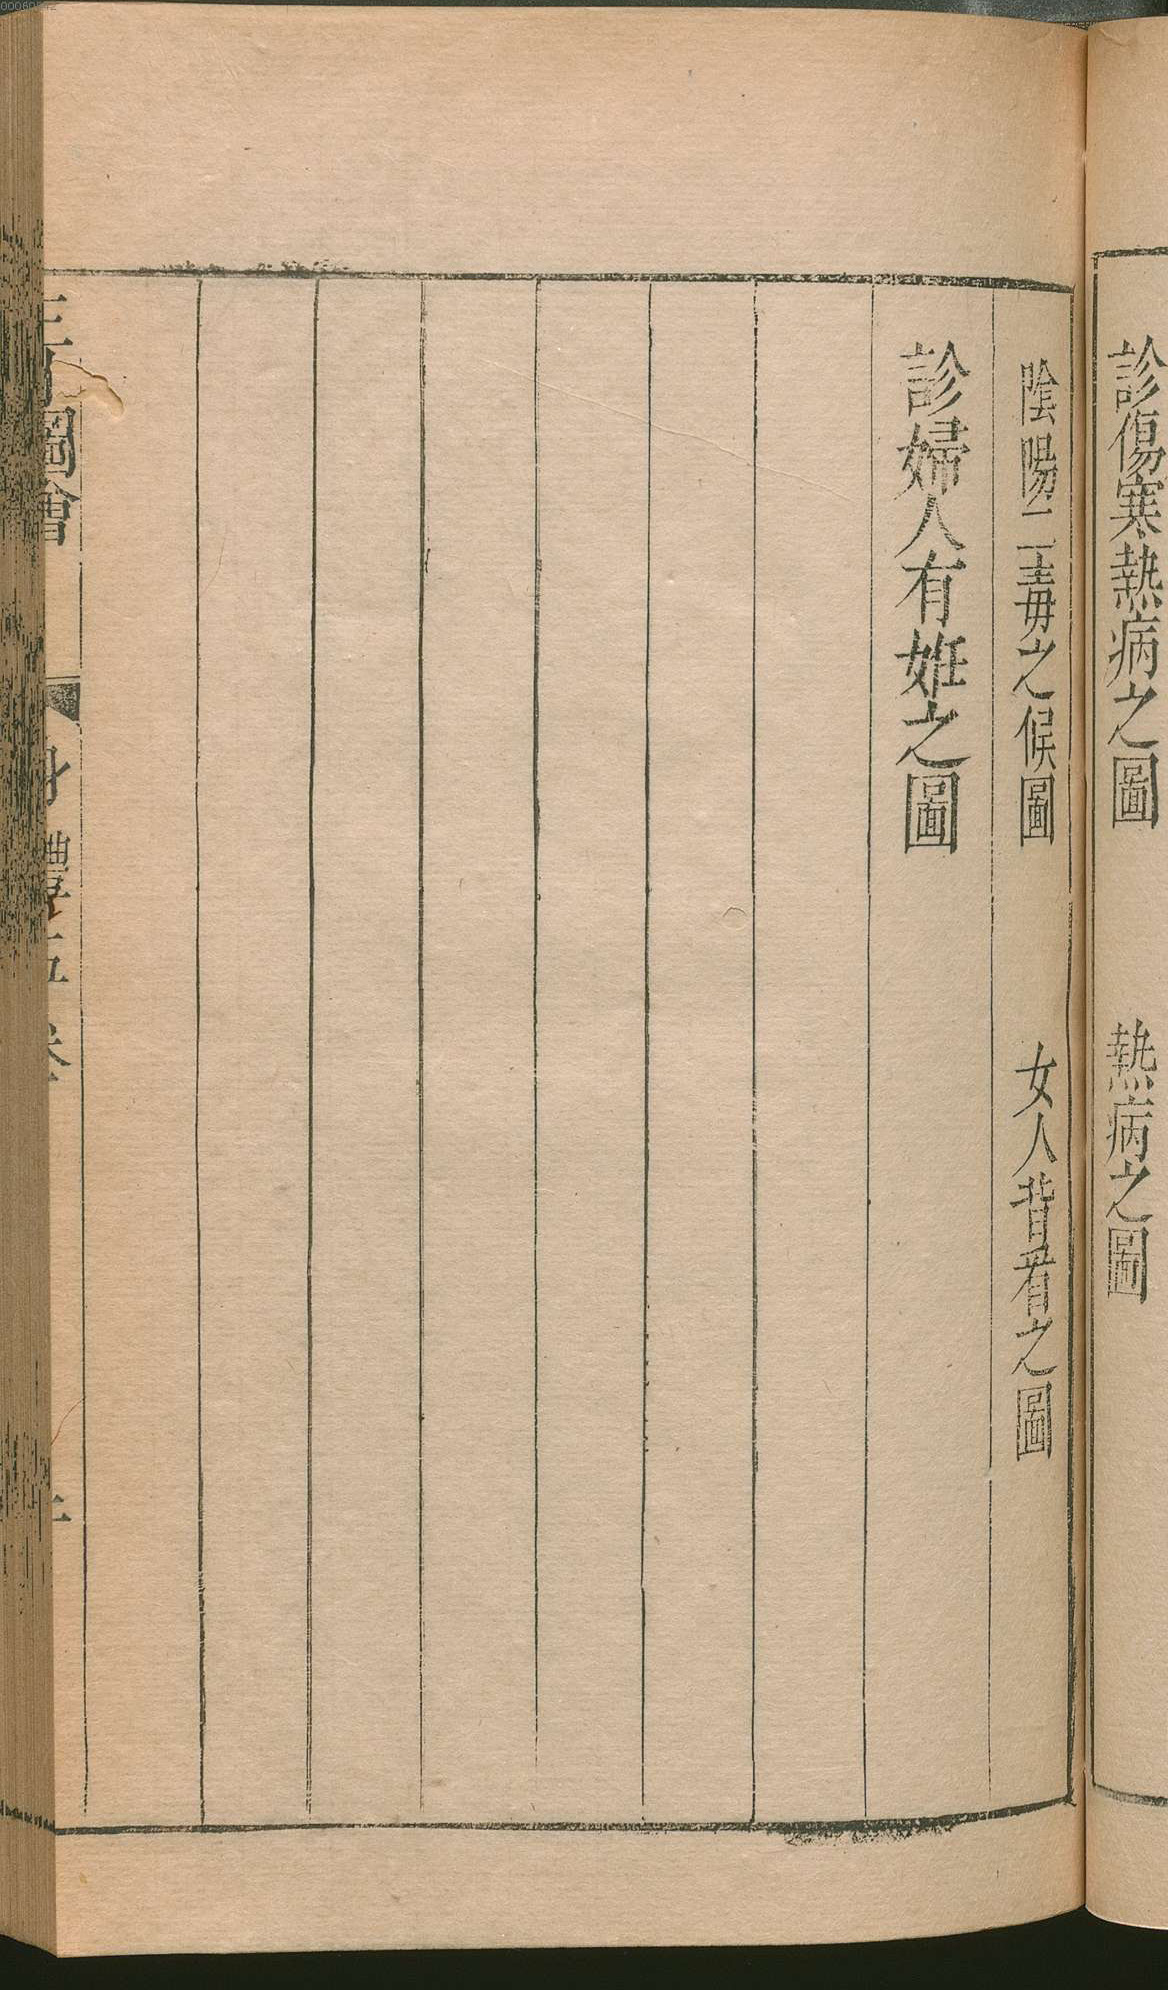 診傷寒熱病之圖　熱病之圖
陰陽二毒之候圖　女人背看之圖
診婦人有姙之圖
三才圖會　身體五卷